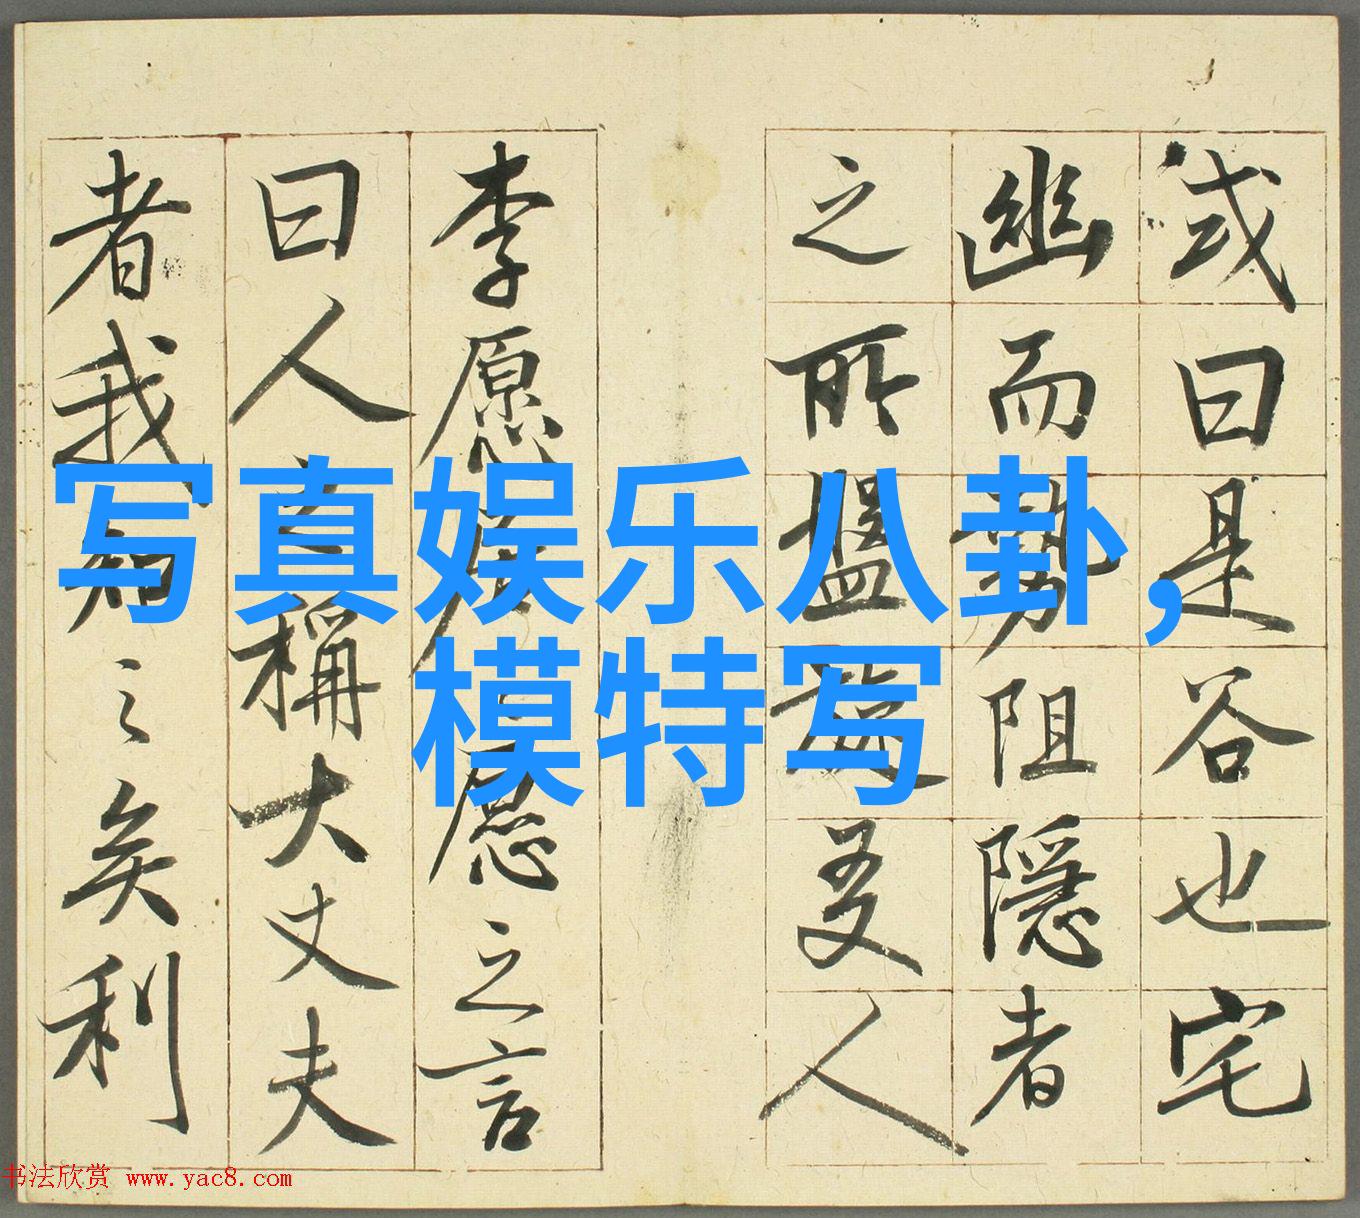 或曰是谷也宅
幽而勢阻隱者
之所盤旋友人
李愿居之愿之言
曰人之稱大丈夫
者我知之矣利
写真娱乐八卦,
模特写
书法欣赏 www.yac8.com